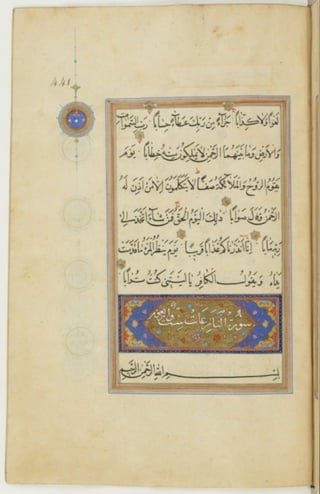 ٤٤١
لغوا ولا كذابا جزاء من ربك عطاء حسابا رب السموات
والارض وما بينهما الرحمن لا يملكون منه خطابا يوم
يقوم الروح والملائكة صفا لا يتكلمون الا من اذن له
الرحمن وقال صوابا ذلك اليوم الحق فمن شاء اتخذ الى
ربه مآبا انا انذرناكم عذابا قريبا يوم ينظر المرء ما قدمت
يداه ويقول الكافر يا ليتني كنت ترابا
سورة النازعات ست
بسم الله الرحمن الرحيم